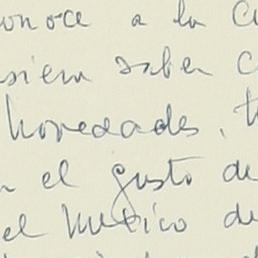 onoce a la C
siera saber c
novedades, t
n el gusto de
el México de